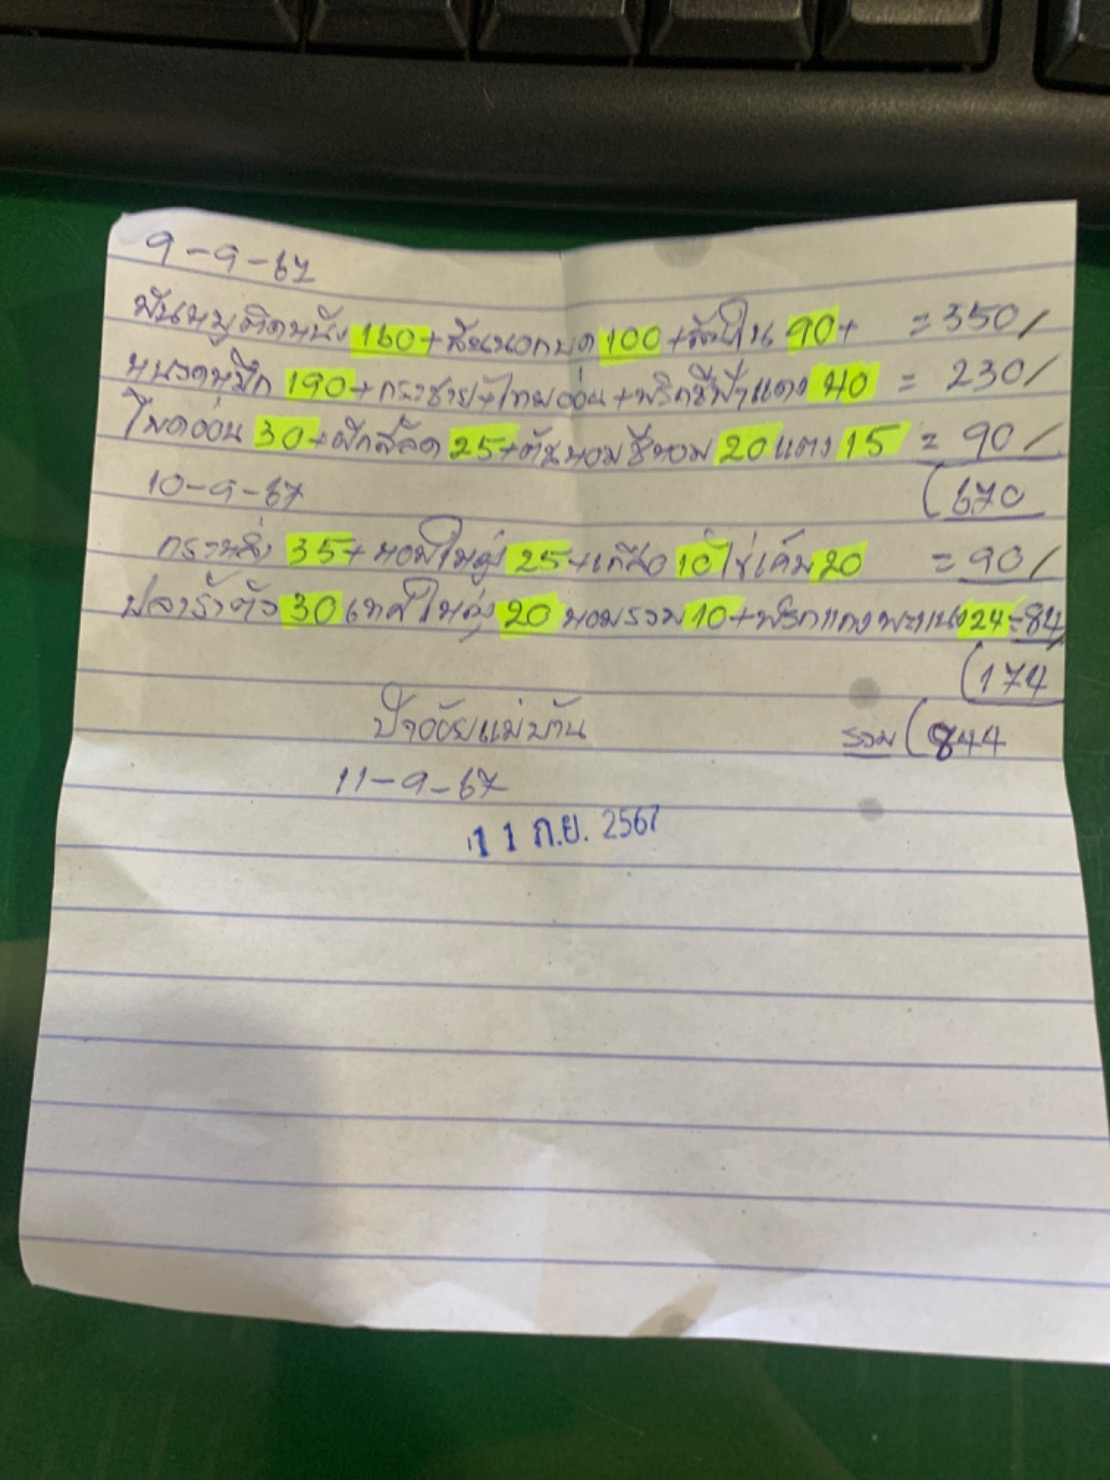 9-9-67
มันหมูติดหนัง 160+สะนอกบด 100+ตับใน 90+ =350/
หนวดหมึก 190+กระชาย+ไทยอ่อน+พริกชี้ฟ้าแดง 40 = 230/
โพดอ่อน 30+ผักสลัด 25+ต้นหอมชีหอม 20 แตง 15 = 90/
(670
10-9-67
กระหล่ำ 35+หอมใหญ่ 25+เกลือ 10 ไข่เค็ม 20 =90/
ปลาร้าตัว 30 เทศใหญ่ 20 หอมรวม 10+พริกแกงพะแนง 24=84/
(174
ปัจอัยแม่บ้าน รวม (844
11-9-67
11 ก.ย. 2567